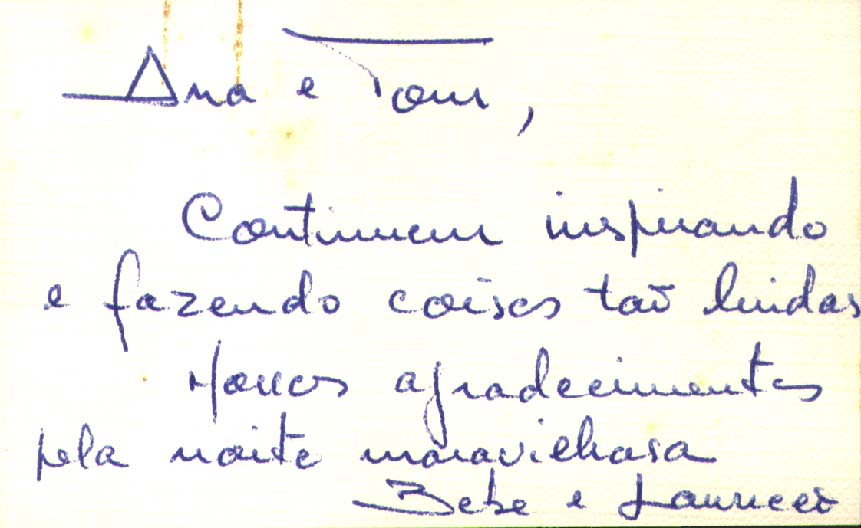 Ana e Tom,
Continuem inspirando
e fazendo coisas tão lindas
Nossos agradecimentos
pela noite maravilhosa
Bebe e